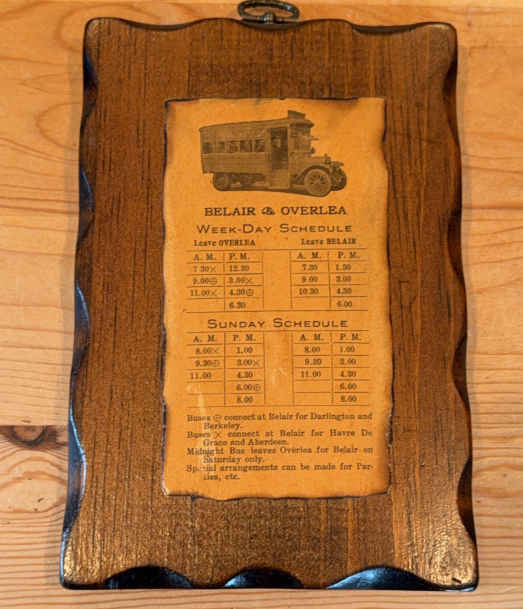 BELAIR & OVERLEA
WEEK-DAY SCHEDULE
Leave OVERLEA Leave BELAIR
A. M. P. M. A. M. P. M.
7.30× 12.30 7.30 1.30
9.00⊙ 3.00× 9.00 3.00
11.00× 4.30⊙ 10.30 4.30
6.30 6.00
SUNDAY SCHEDULE
A. M. P. M. A. M. P. M.
8.00× 1.00 8.00 1.00
9.30⊙ 3.00× 9.30 3.00
11.00 4.30 11.00 4.30
6.00⊙ 6.00
8.00 8.00
Buses ⊙ connect at Belair for Darlington and
Berkeley.
Buses × connect at Belair for Havre De
Grace and Aberdeen.
Midnight Bus leaves Overlea for Belair on
Saturday only.
Special arrangements can be made for Par-
ties, etc.